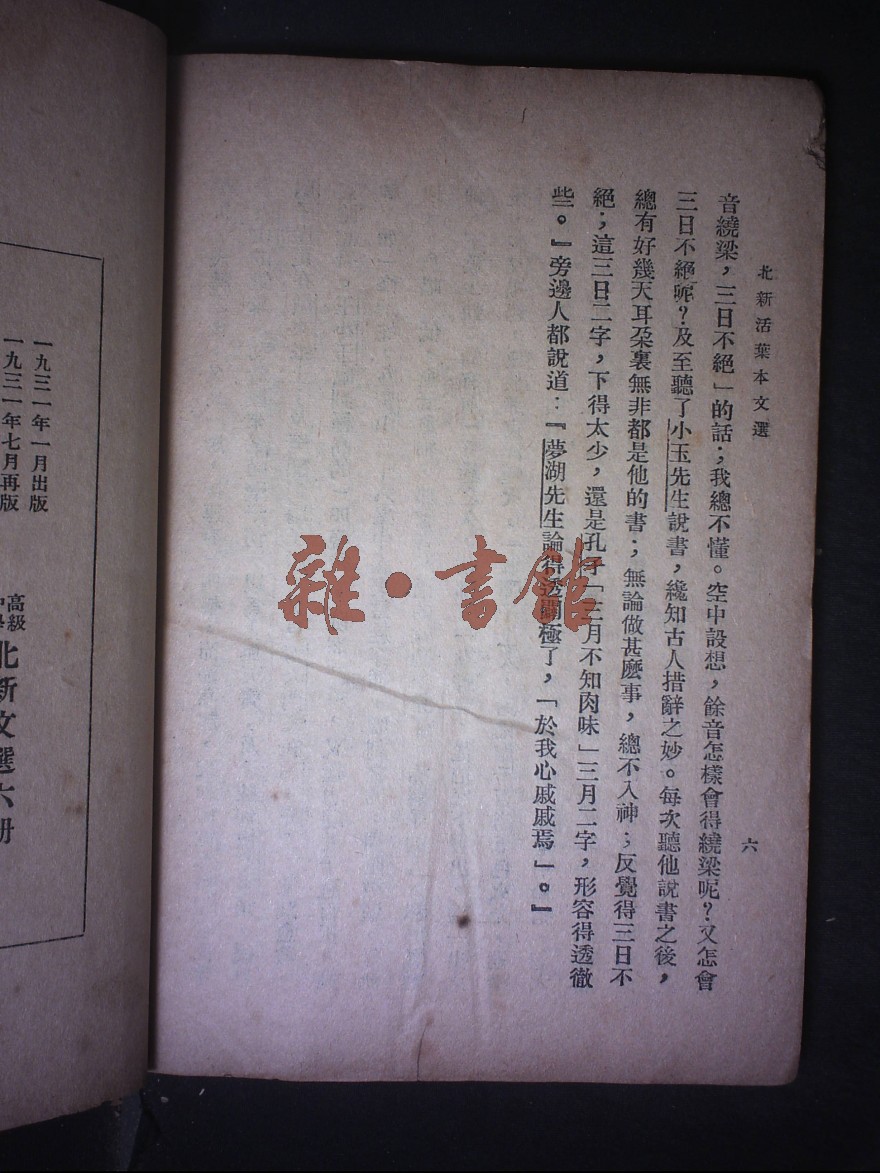 北新活葉本文選
六
音繞梁，三日不絕」的話；我總不懂。空中設想，餘音怎樣會得繞梁呢？又怎會
三日不絕呢？及至聽了小玉先生說書，纔知古人措辭之妙。每次聽他說書之後，
總有好幾天耳朶裏無非都是他的書；無論做甚麽事，總不入神；反覺得三日不
絕；這三日二字，下得太少，還是孔子「三月不知肉味」三月二字，形容得透徹
些。』旁邊人都說道：『夢湖先生論得透闢極了，「於我心戚戚焉」。』
雜·書館
一九三一年一月出版
一九三一年七月再版
高級
北新文選六册